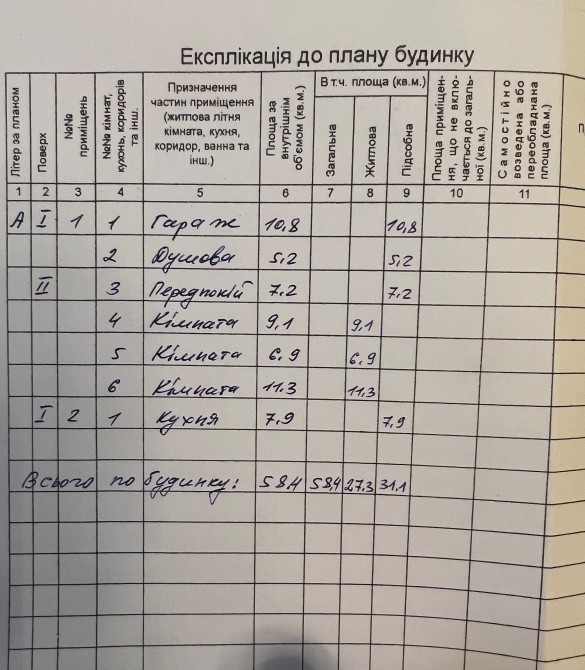 Експлікація до плану будинку
Літер за планом | Поверх | №№ приміщень | №№ кімнат, кухонь, коридорів та інш. | Призначення частин приміщення (житлова літня кімната, кухня, коридор, ванна та інш.) | Площа за внутрішнім обʼємом (кв.м.) | В т.ч. площа (кв.м.) | Загальна | Житлова | Підсобна | Площа приміщення, що не включається до загальної (кв.м.) | Самостійно возведена або переобладнана площа (кв.м.)
1 2 3 4 5 6 7 8 9 10 11
А І 1 1 Гараж 10,8 10,8
2 Душова 5,2 5,2
ІІ 3 Передпокій 7,2 7,2
4 Кімната 9,1 9,1
5 Кімната 6,9 6,9
6 Кімната 11,3 11,3
І 2 1 Кухня 7,9 7,9
Всього по будинку: 58,4 58,4 27,3 31,1